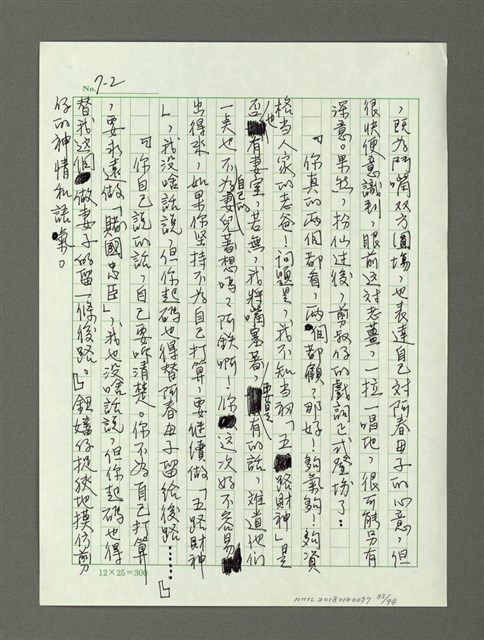 No. 7-2
，既為阿嘴双方圓場，也表達自己对阿春母子的心意，但
很快便意識到，眼前这对老薑，一拉一唱地，很可能另有
深意。果然，扮仙过後，剪 仔的戲詞正式登場了：
「你真的两個都看，两個都顧？那好！夠氣夠！夠資
格当人家的老爸！问題是，我不知当初「五路財神」是
否也有妻室，若無，我將嘴塞著，要是有的話，难道他们
一点也不為自己的妻兒著想嗎？阿欽啊！你这次好不容易
出得來，如果你坚持不為自己打算，要继續做「五路財神
」，我没啥話說，但你起碼也得替阿春母子留給後路……」
「你自己說的話，自己要听清楚。你不為自己打算
，要永遠做「賭國忠臣」，我也没啥話說，但你起碼也得
替我这個做妻子的留一條後路。」鈕 仔捉狹地摸仿剪
仔的神情和語氣。
12×25=300
NMTL20180140097 73/94